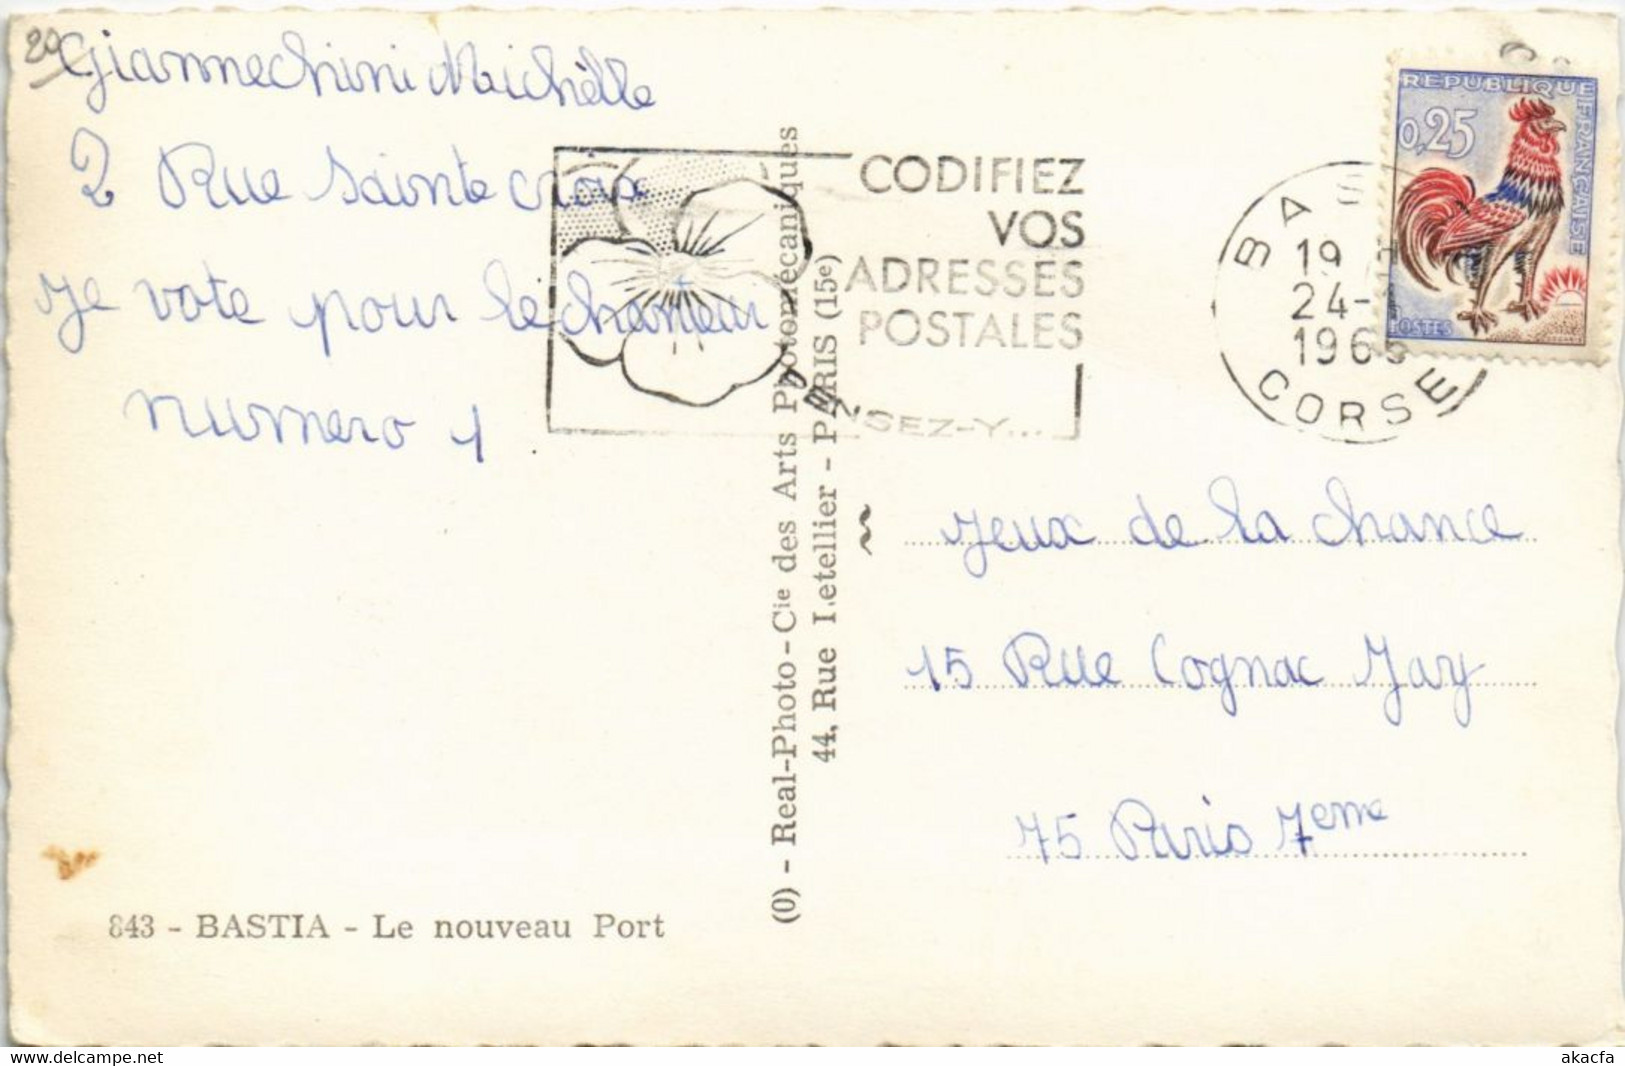 20
Giannechini Michèlle
2 Rue Sainte croix
Je vote pour le chanteur
numero 1
CODIFIEZ
VOS
ADRESSES
POSTALES
PENSEZ-Y...
BAS
19
24-
1965
CORSE
REPUBLIQUE FRANÇAISE
0,25
POSTES
(0) - Real-Photo - Cie des Arts Photomécaniques
44, Rue Letellier - PARIS (15e)
Jeux de la chance
15 Rue Cognac Jay
75 Paris 7eme
843 - BASTIA - Le nouveau Port
delcampe.net
akacfa